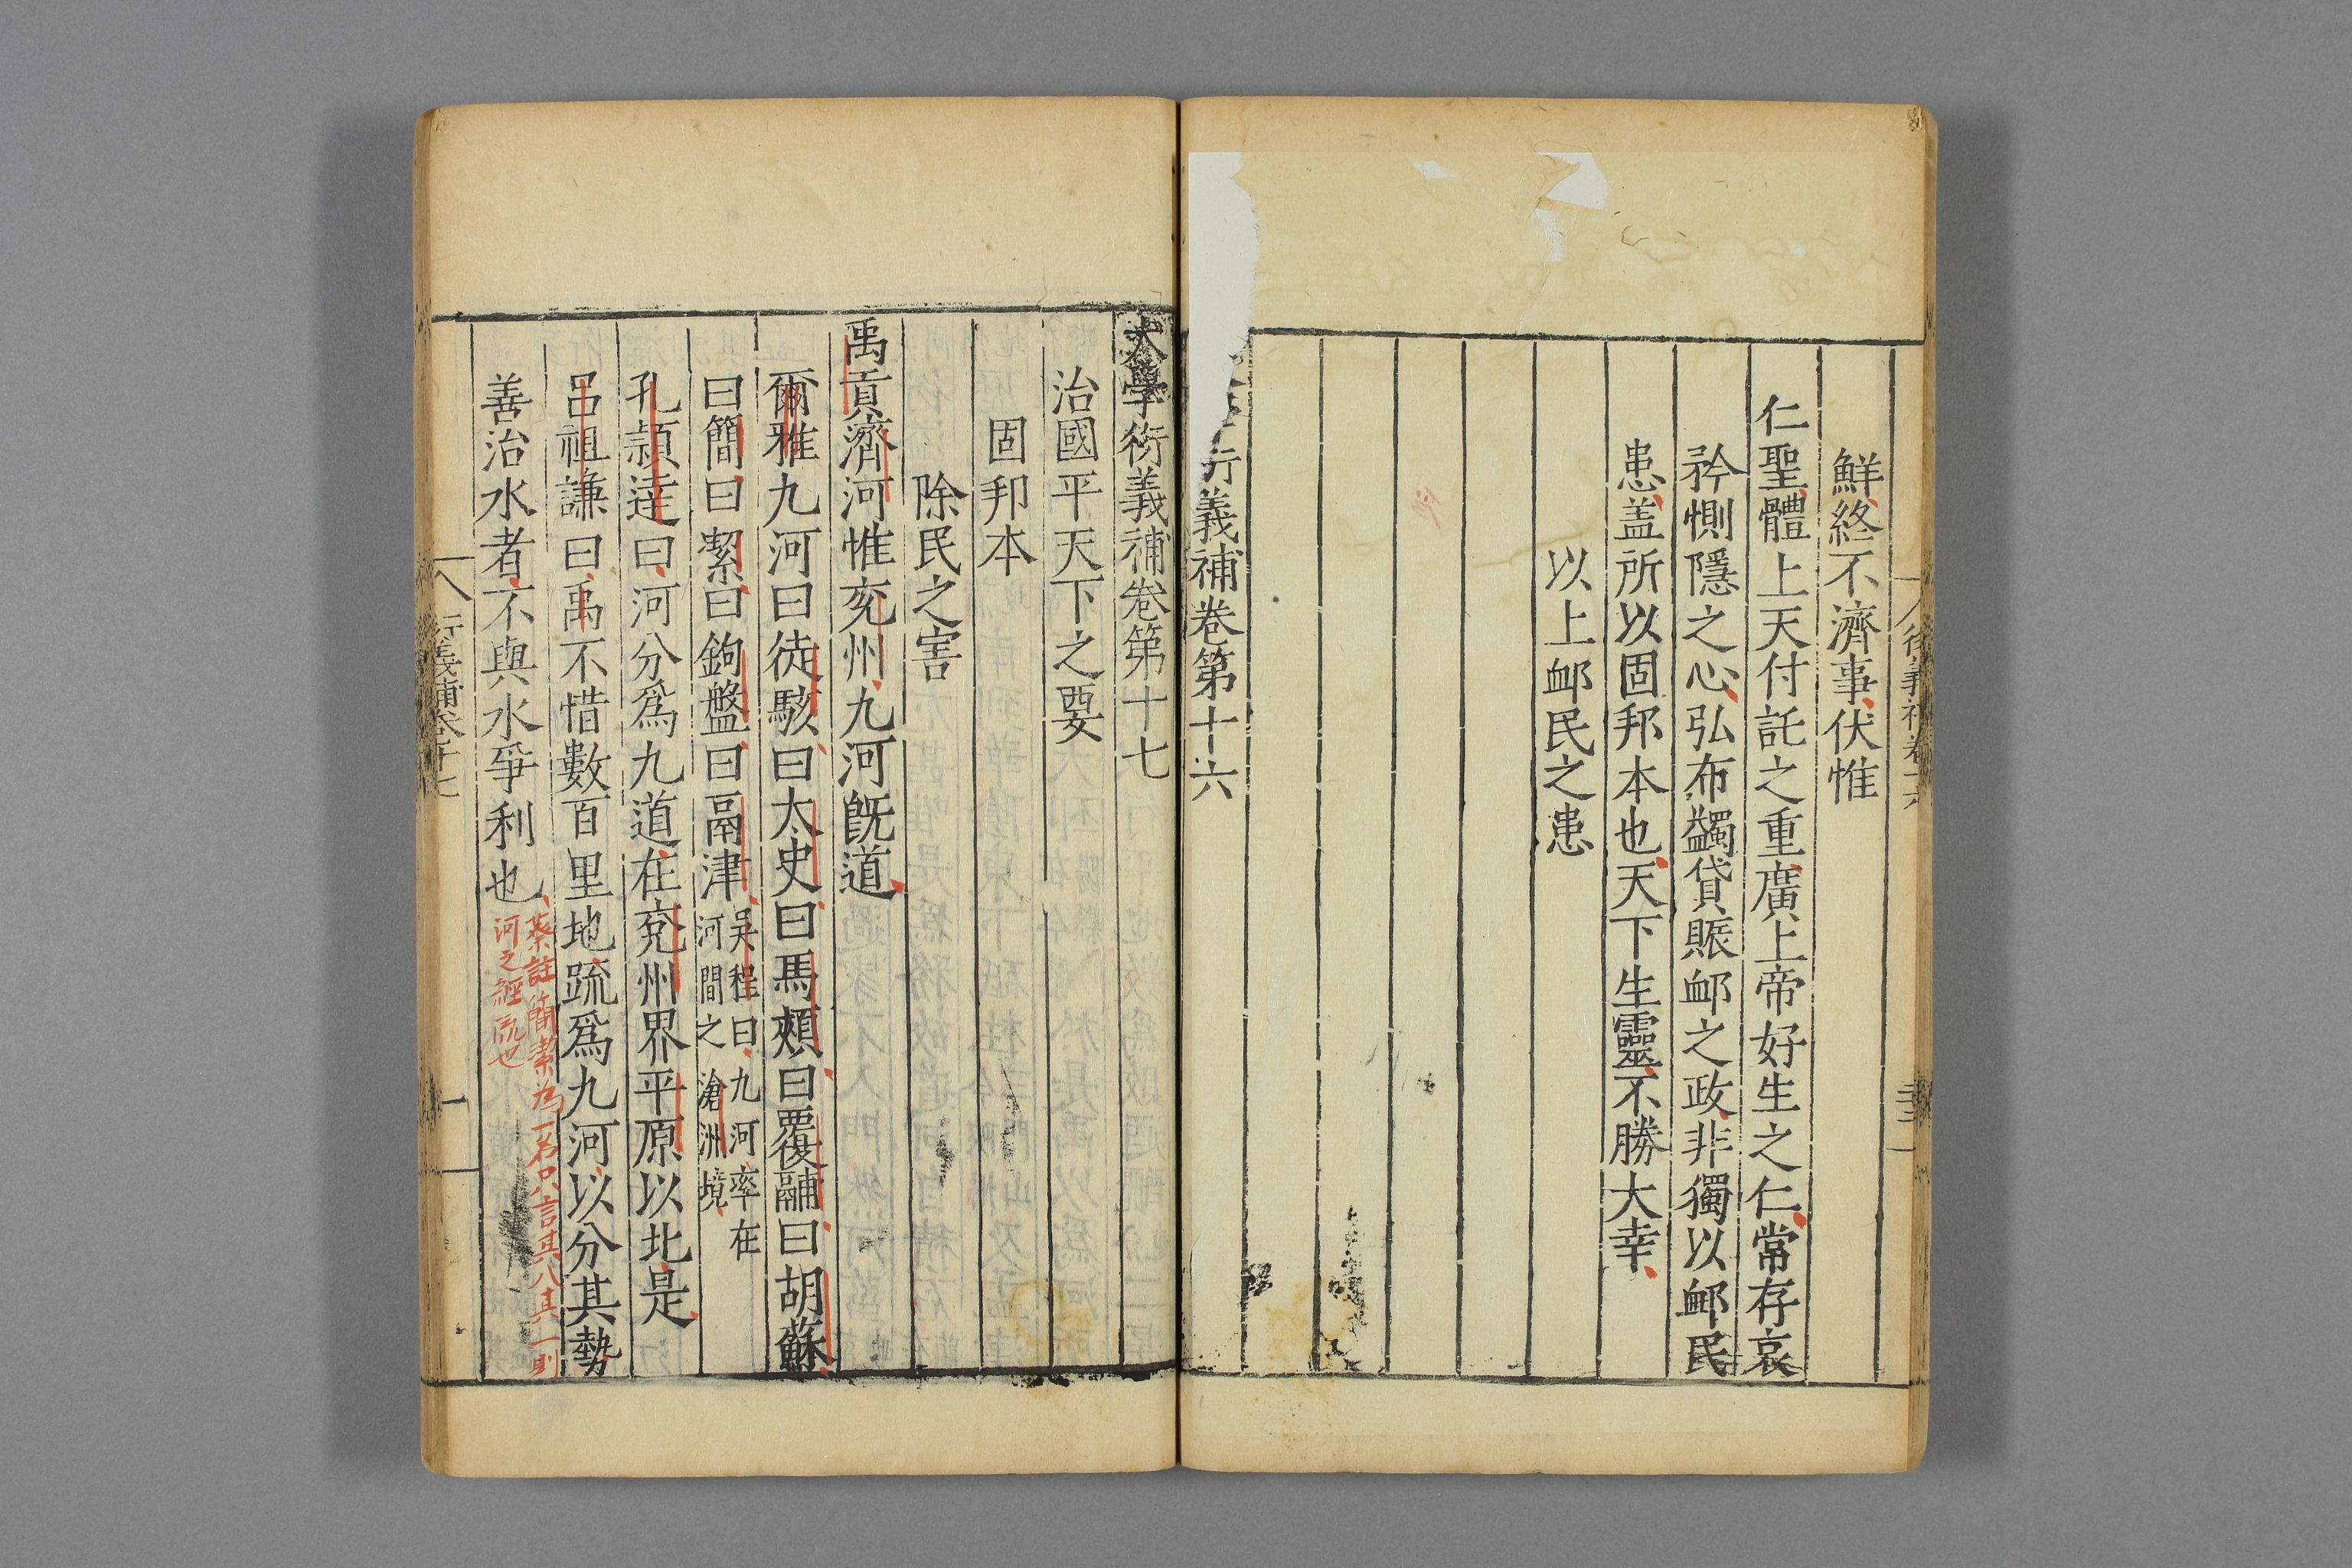 鮮終不濟事伏惟
仁聖體上天付託之重廣上帝好生之仁常存哀
矜惻隱之心弘布蠲貸賑䘏之政非獨以䘏民
患盖所以固邦本也天下生靈不勝大幸
以上䘏民之患
衍義補卷第十六
大學衍義補卷第十七
治國平天下之要
固邦本
除民之害
禹貢濟河惟兗州九河旣道
爾雅九河曰徒駭曰太史曰馬頰曰覆鬴曰胡蘇
曰簡曰絜曰鉤盤曰鬲津吳程曰九河率在
河間之滄洲境
孔頴達曰河分爲九道在兗州界平原以北是
呂祖謙曰禹不惜數百里地疏爲九河以分其勢
善治水者不與水爭利也
蔡註簡潔为一名只言其八其一則
河之經流也
衍義補卷十七
一